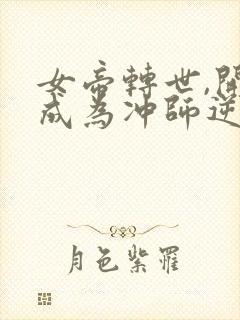 女帝轉世,開
成為冲師逆
月色紫羅